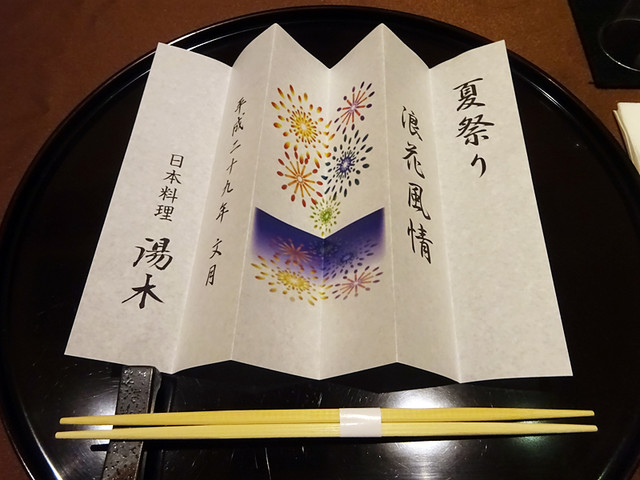 夏祭り
浪花風情
平成二十九年 文月
日本料理 湯木